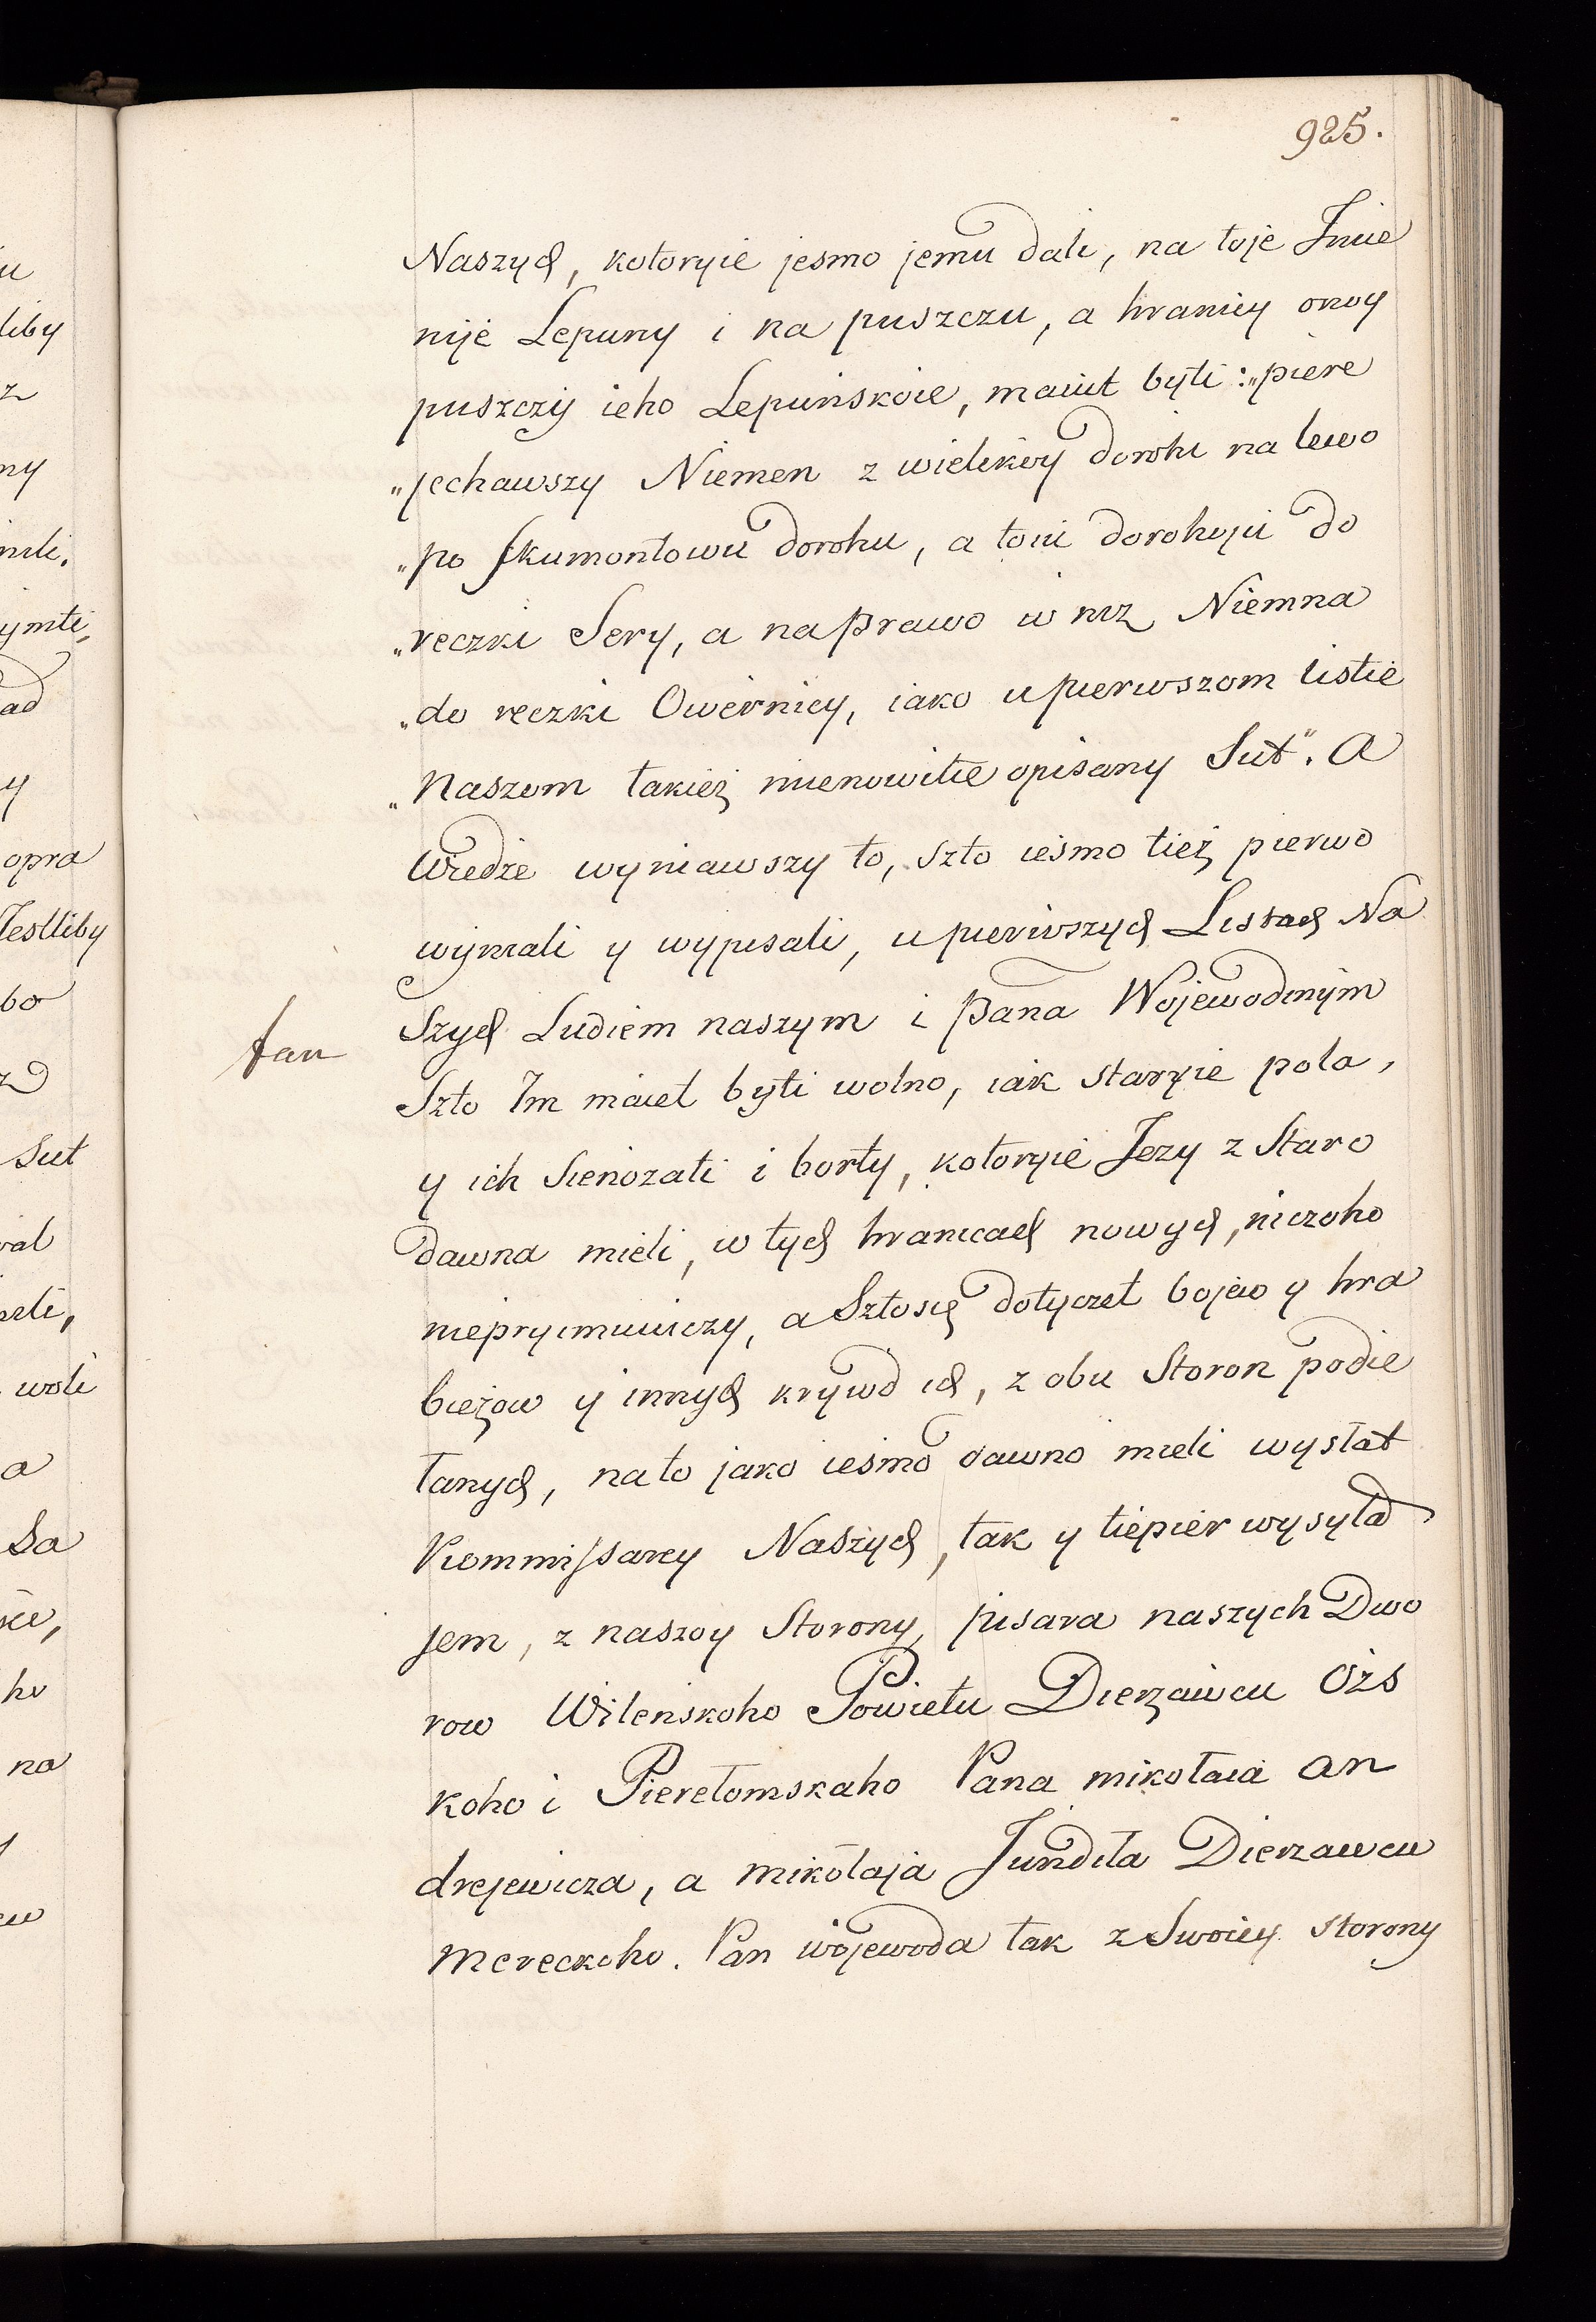 925.
Naszych, kotoryie jesmo jemu dali, na toje Imie
nije Lepuny i na puszczu, a hranicy onoy
puszczy ieho Lepunskoie, maiut byti: „piere
„jechawszy Niemen z wielikoy dorohi na lewo
„po Skumontowu dorohu, a toiu dorohoju do
„reczki Sery, a na prawo w niz Niemna
„do reczki Owernicy, iako u pierwszom listie
„Naszom takież mienowitie opisany Sut". A
Wiedże wyniawszy to, szto iesmo tież pierwo
wyniali y wypisali, u pierwszych Listach Na
szych Ludiem naszym i Pana Wojewodinym
Szto Im maiet byti wolno, iak staryie pola,
y ich Sienożati i borty, kotoryie Jezy z Staro
dawna mieli, w tych hranicach nowych, niczoho
nieprymuiuczy, a Sztosię dotyczet bojew y hra
bieżow y innych krywd ich, z obu Storon podie
łanych, na to jako iesmo dawno mieli wysłat
Kommissarey Naszych, tak y tiepier wysyła
jem, z naszoy Storony, pisara naszych Dwo
row Wilenskoho Powietu Dierżawcu Ożs
koho i Pierełomskaho Pana mikołaia An
drejewicza, a mikołaja Jundiła Dierzawcu
Mereckoho. Pan wojewoda tak z Swoiey storony
u
liby
z
ny
ad
y
opra
Jestliby
bo
z
Sut
woli
a
Sa
ho
na